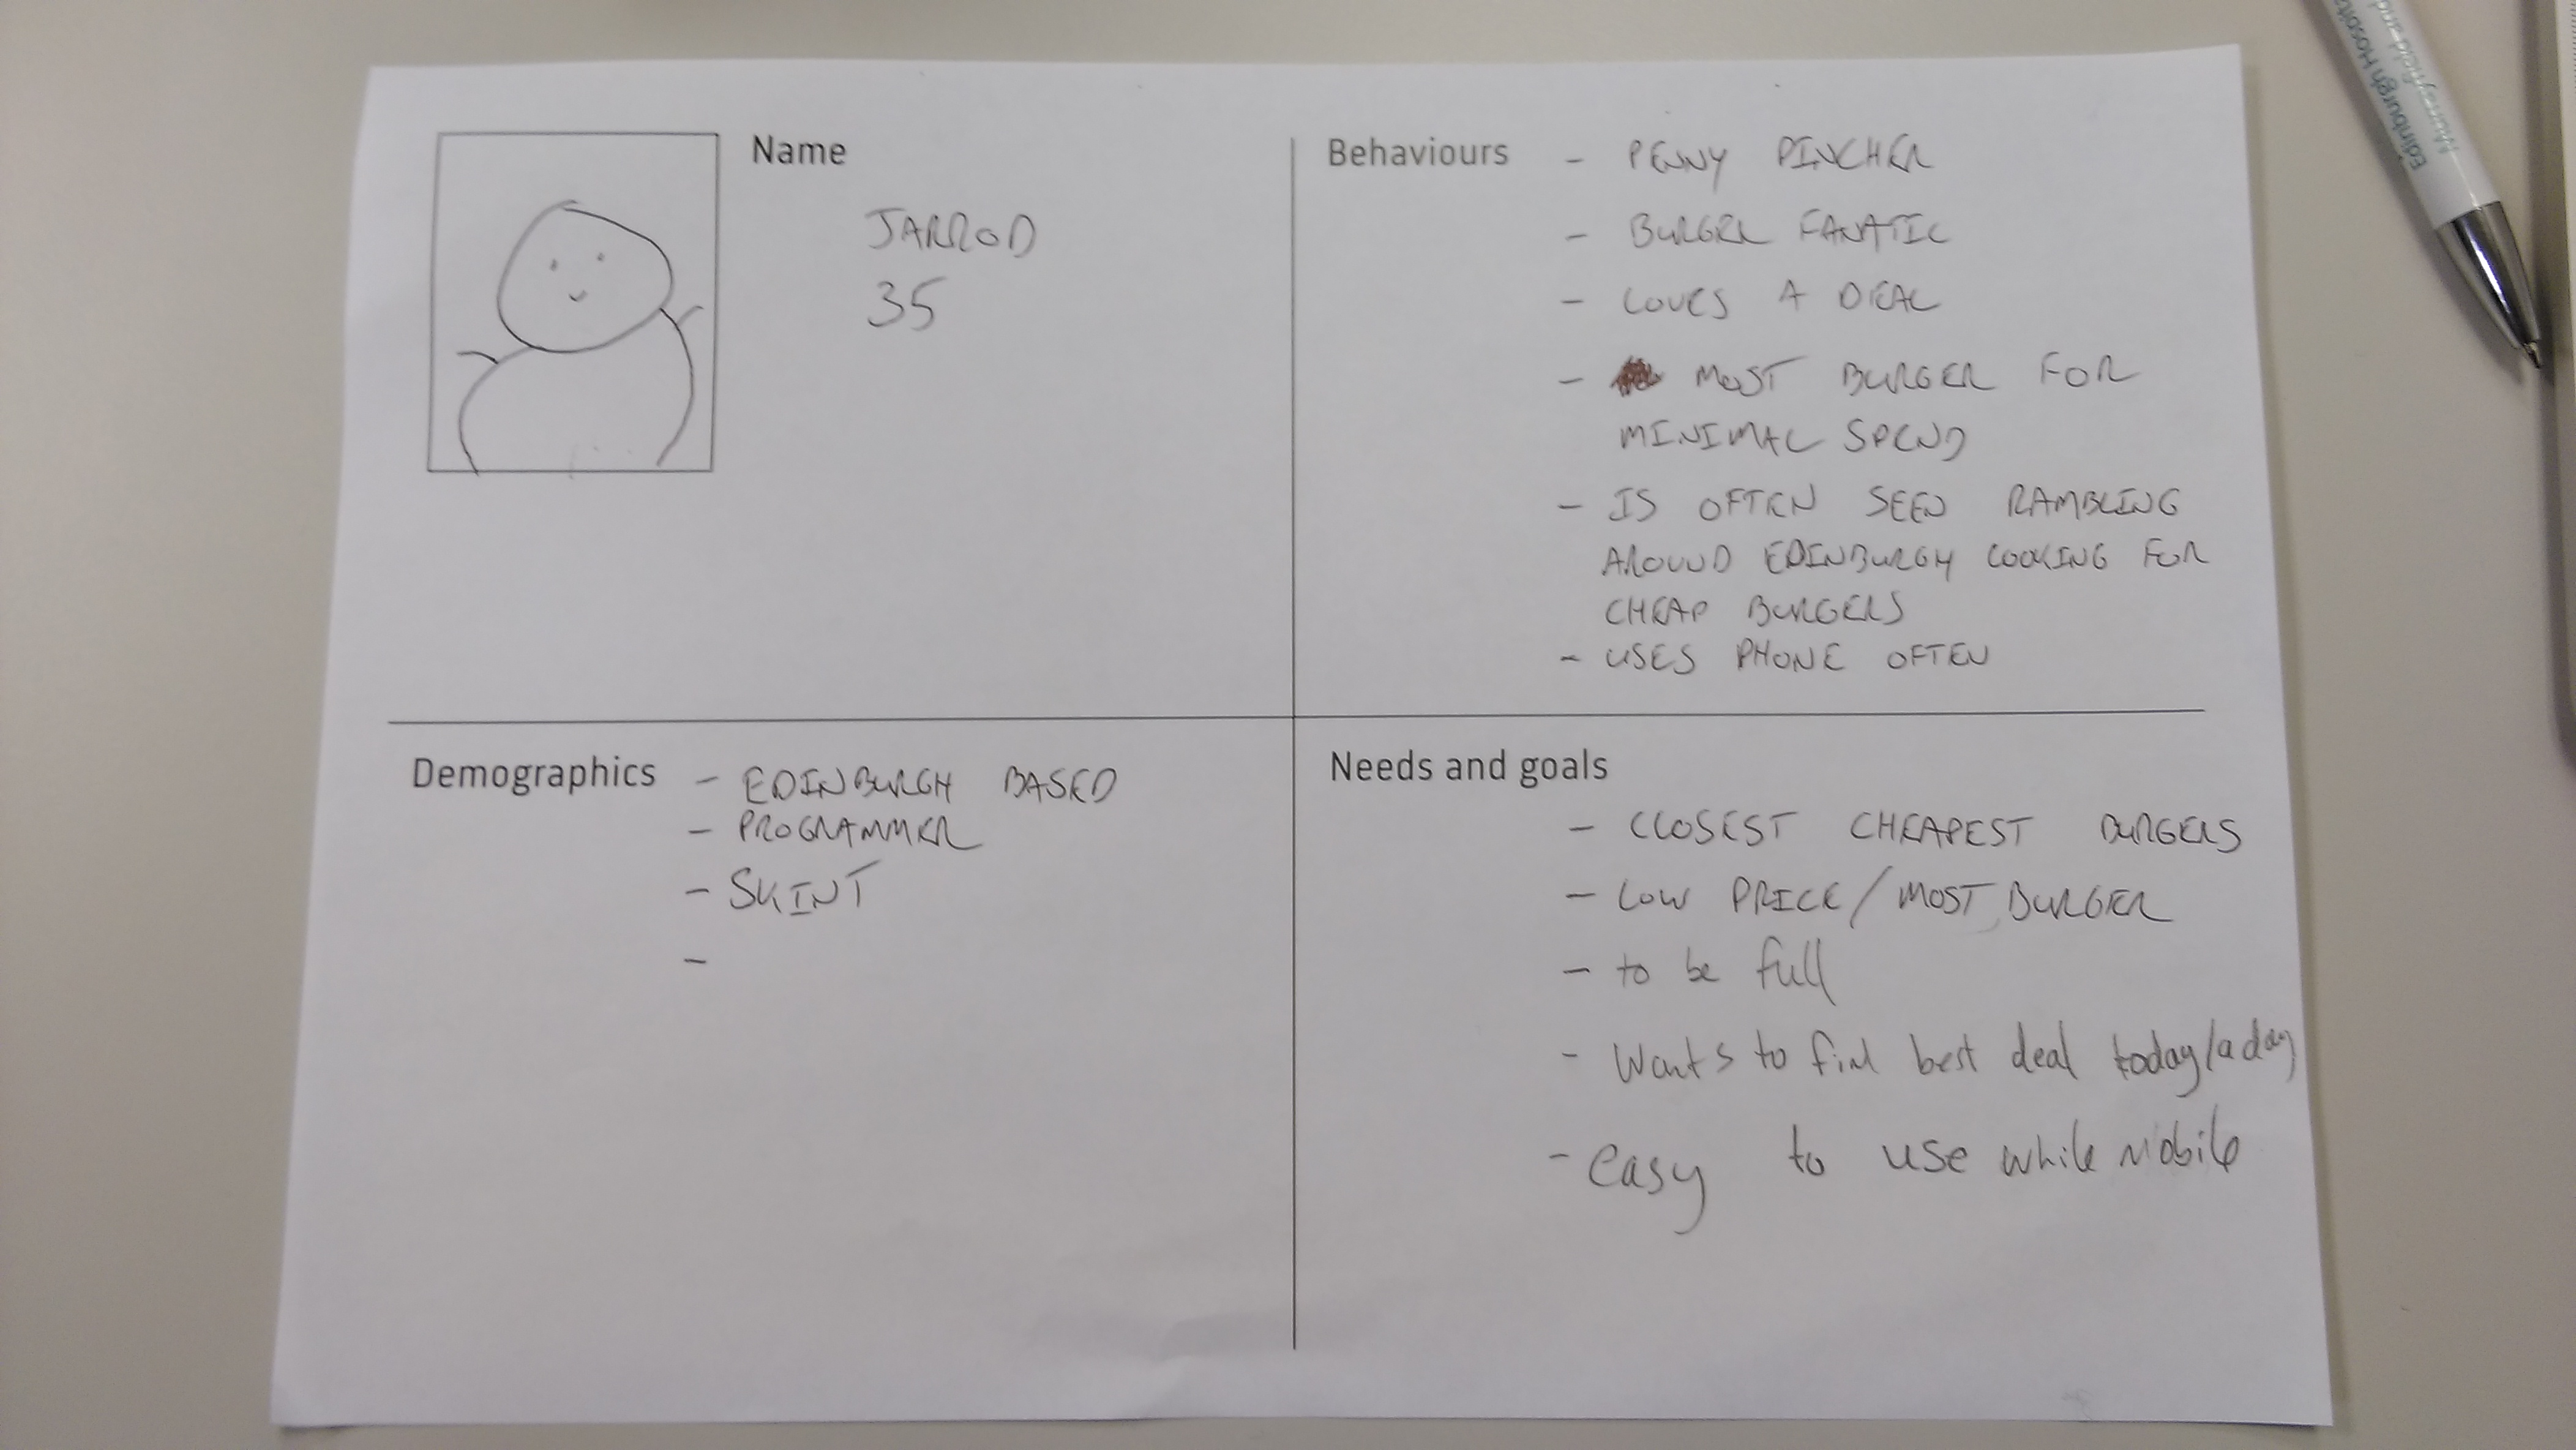 Name
JARROD
35
Behaviours
- PENNY PINCHER
- BURGER FANATIC
- LOVES A DEAL
- MOST BURGER FOR
MINIMAL SPEND
- IS OFTEN SEEN RAMBLING
AROUND EDINBURGH LOOKING FOR
CHEAP BURGERS
- USES PHONE OFTEN
Demographics
- EDINBURGH BASED
- PROGRAMMER
- SKINT
-
Needs and goals
- CLOSEST CHEAPEST BURGERS
- LOW PRICE/MOST BURGER
- to be full
- Wants to find best deal today/a day
- easy to use while mobile
Edinburgh Hospita
Murrayfield and